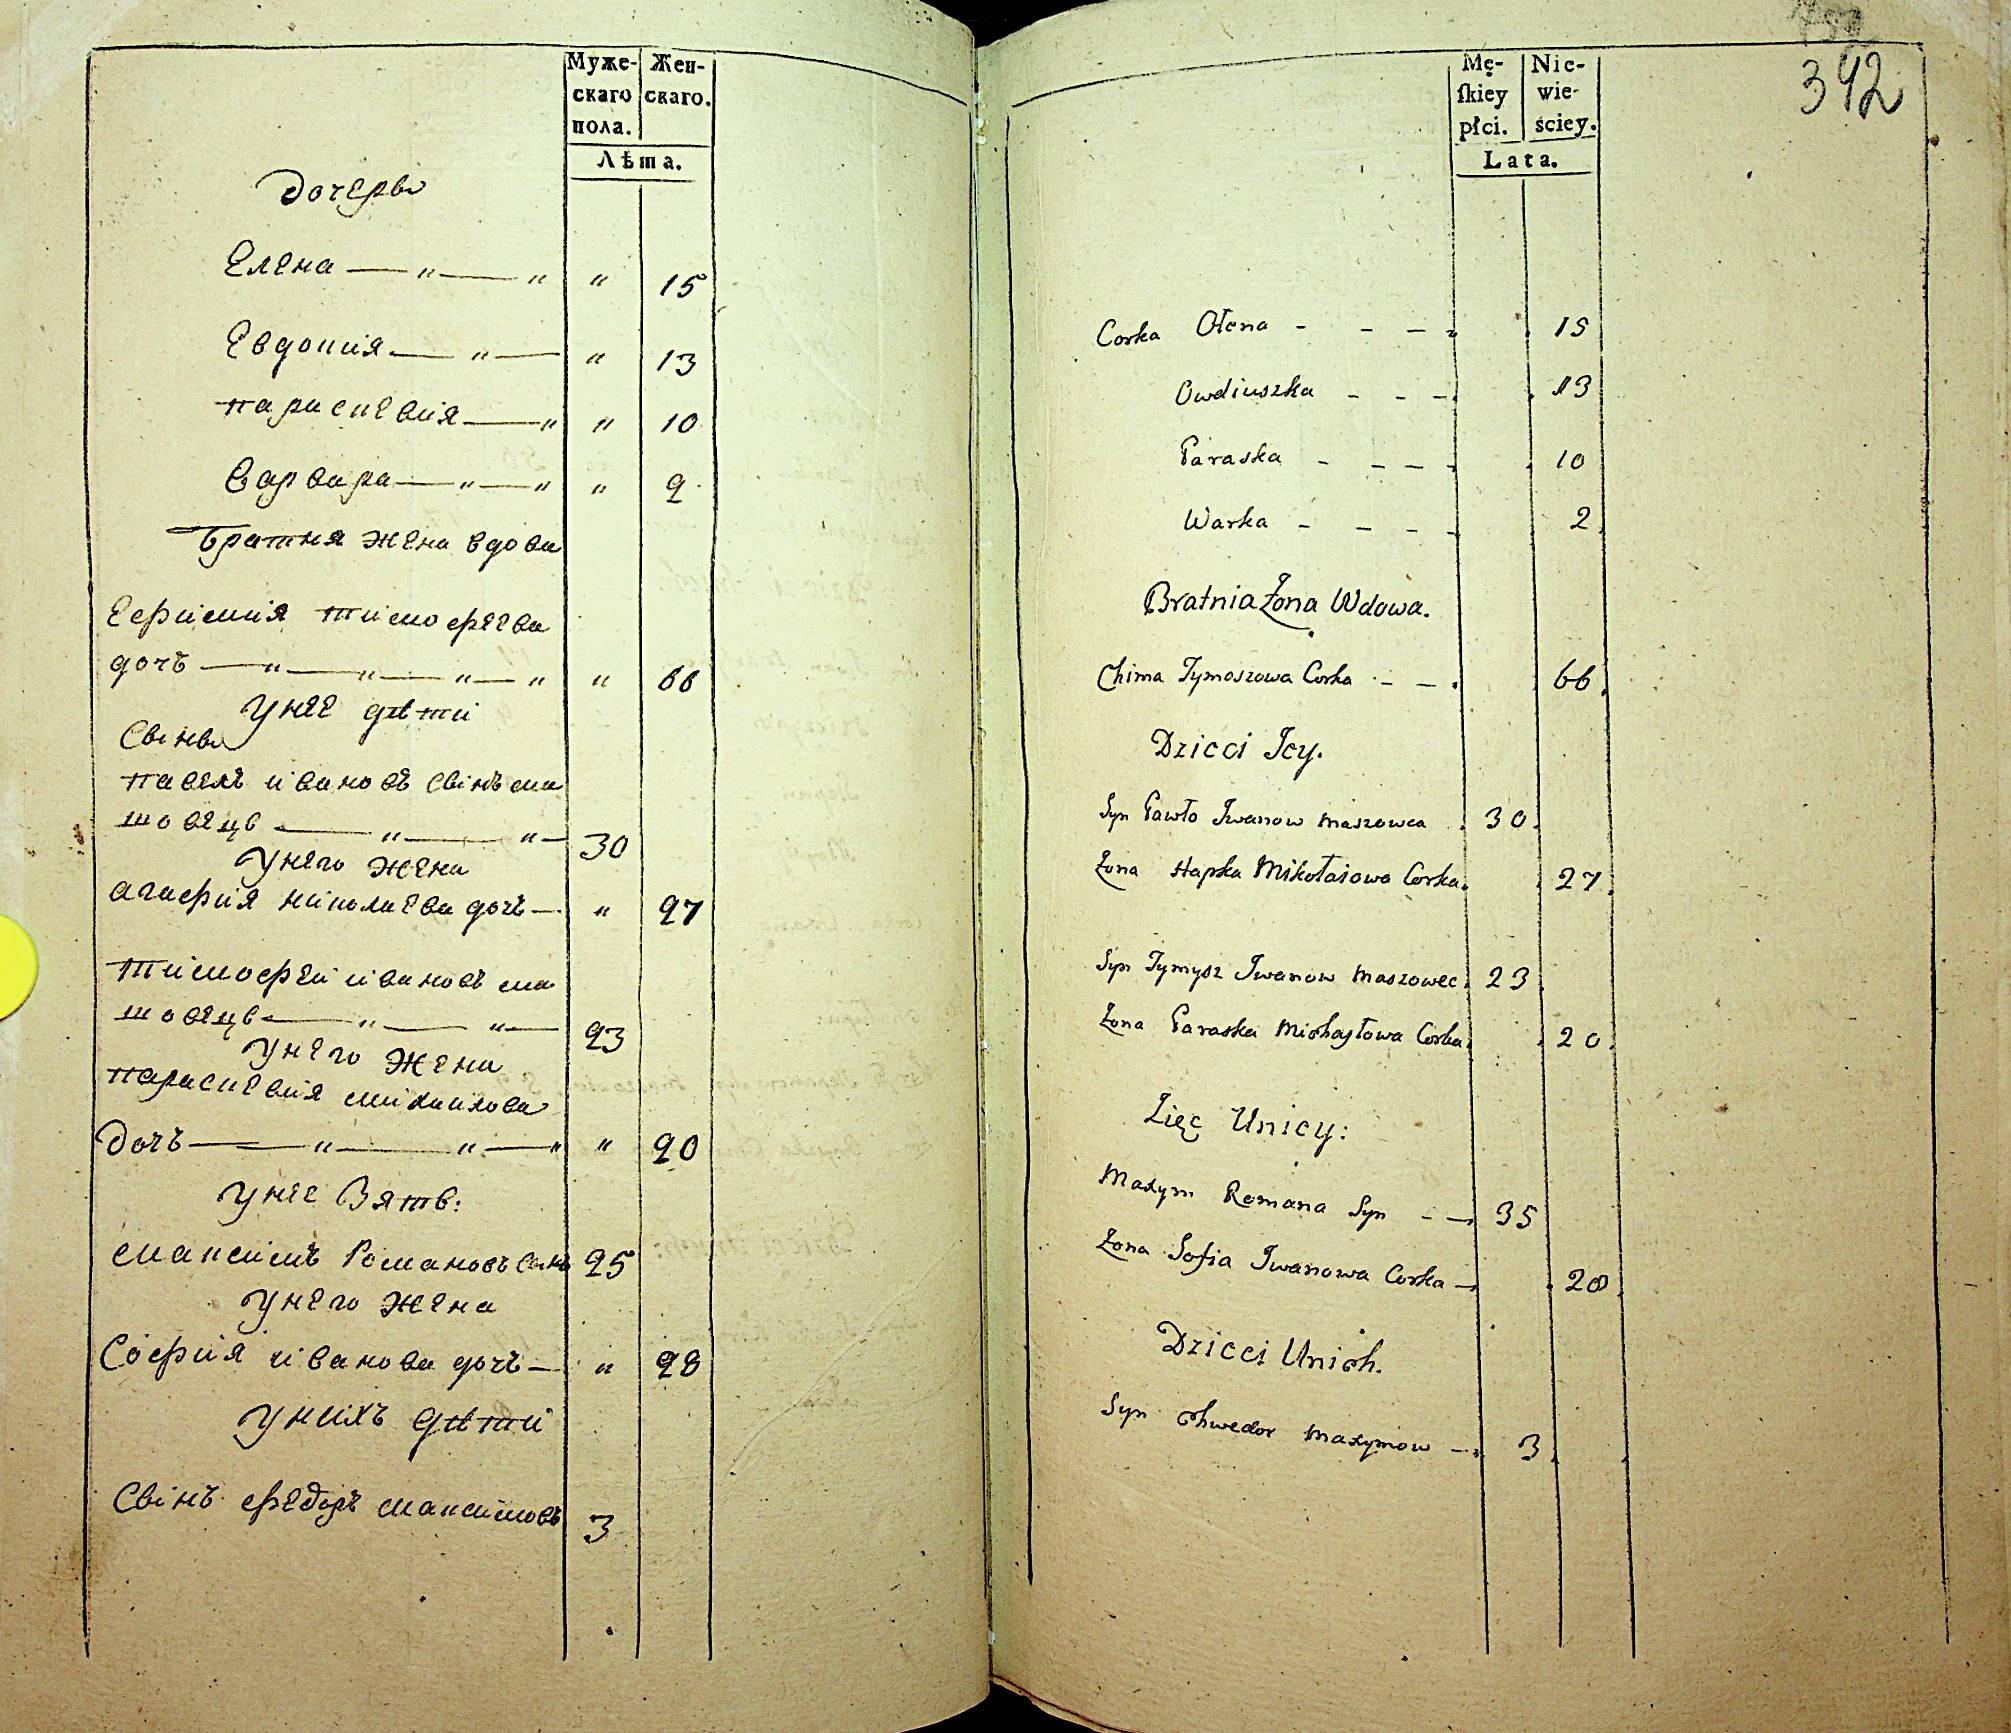 Муже-
скаго
пола.
Жен-
скаго.
Лѣта.
Дочерѣ
Елена — " — " " 15
Евдокия — " — " 13
параскевия — " " 10
варвара — " — " " 2
братня жена вдова
Ефимия тимофеева
дочъ — " — " — " — " " 66
У нее дѣти
Сынвѣ
павелъ ивановъ сынъ ма
шовецъ — " — " — 30
У него жена
агафия николаева дочъ — " 27
тимофей ивановъ ма
шовецъ — " — " — 23
У него жена
параскевия михаилова
Дочъ — " — " — " " 20
У нее Зять:
максимъ Романовъ сынъ 25
У него жена
София иванова дочъ — " 28
У нихъ дѣти
Сынъ федоръ максимовъ 3
392
Mę-
ſkiey
płci.
Nie-
wie-
ściey.
Lata.
Corka Ołena - - - - 15
Owdiuszka - - - 13
Paraska - - - - 10
Warka - - - - 2
Bratnia Żona Wdowa.
Chima Tymoszowa Corka - - 66
Dzieci Jey.
Syn Pawło Iwanow Maszowca 30
Żona Hapka Mikołaiowa Corka 27
Syn Tymysz Iwanow Maszowec 23
Żona Paraska Michayłowa Corka 20
Zięć Unicy:
Maxym Romana Syn - - 35
Żona Sofia Iwanowa Corka - 28
Dzieci Unich.
Syn Chwedor Maxymow - 3